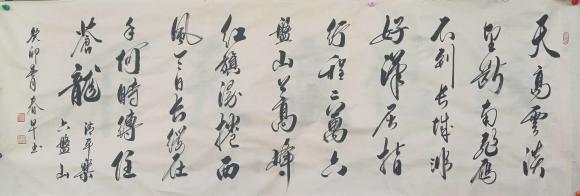 天高雲淡
望斷南飛雁
不到長城非
好漢屈指
行程二萬六
盤山上高峰
紅旗漫捲西
風今日長纓在
手何時縛住
蒼龍
清平樂
六盤山
癸卯 月春早書